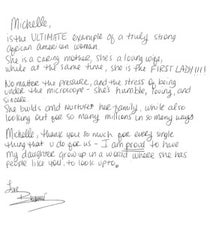 Michelle,
is the ULTIMATE example of a truly strong
african american woman.
She is a caring mother, she's a loving wife,
while at the same time, she is the FIRST LADY!!!!
No matter the pressure, and the stress of being
under the microscope - she's humble, loving, and
sincere.
She builds and nurtures her family, while also
looking out for so many millions in so many ways
Michelle, thank you so much for every single
thing that u do for us - I am proud to have
my daughter grow up in a world where she has
people like you, to look up to.